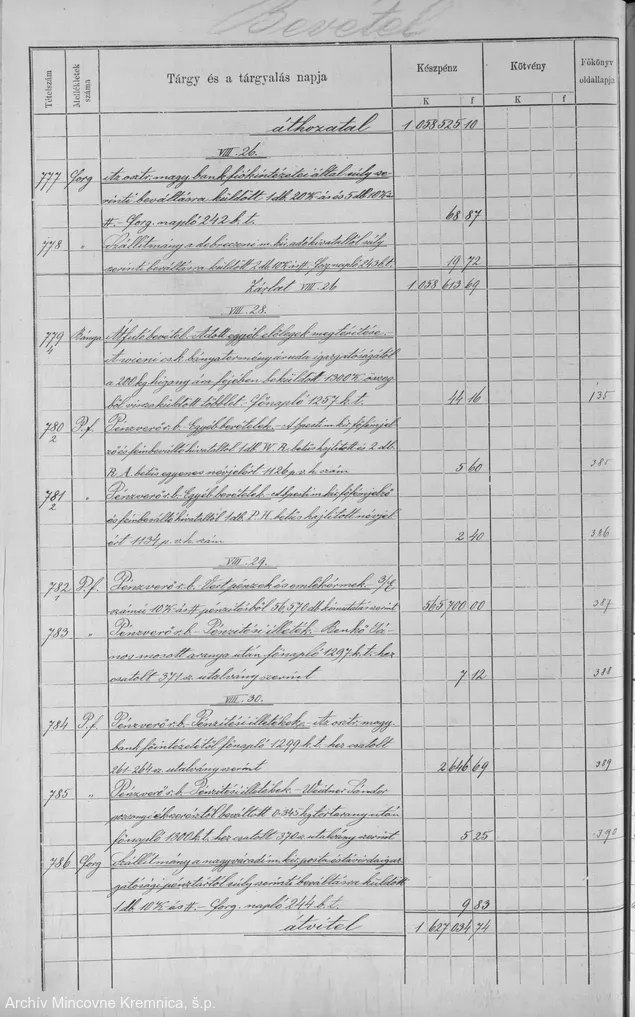 Bevétel
Tételszám Mellékletek száma Tárgy és a tárgyalás napja Készpénz Kötvény Főkönyv oldallapja
K f K f
áthozatal 1 058 525 10
VIII. 26.
777 Forg Az osztr. magy. bank fiókintézetei által súly sze-
rinti beváltásra küldött 1 db. 20 K ás és 5 db. 10 K ás
Forg. napló 242 k. t. 68 87
778 " Szállítmány a debreczeni m. kir. adóhivataltól súly
szerinti beváltásra küldött 2 db. 10 K ás Forg. napló 243 k. t. 19 72
Zárlat VIII. 26 1 058 613 69
VIII. 28.
779 4 Bánya Átfutó bevétel. Adott egyéb előlegek megtérítése.
A wieni cs. k. bányatermény áruda igazgatóságától
a 200 kg higany ára fejében beküldött 1300 K összeg-
ből visszaküldött többlet. Főnapló 1257 k. t. 44 16 135
780 2 P. f. Pénzverő r. b. Egyéb bevételek. A pesti m. kir. főfémjel-
ző és fémbeváltó hivataltól 1 db. W. R. betűs hajlított és 2 db.
R. A. betűs egyenes névjelért 1126 p. v. h. szám 5 60 385
781 2 " Pénzverő r. b. Egyéb bevételek. A pesti m. kir. főfémjelző
és fémbeváltó hivataltól 1 db. P. H. betűs hajlított névjel-
ért 1134 p. v. h. szám 2 40 386
VIII. 29.
782 1 P. f. Pénzverő r. b. Vert pénzek és emlékérmek.
számú 10 K ás pénzítésből 56.570 db kimutatás szerint 565 700 00 387
783 " Pénzverő r. b. Pénzítési illeték. Benkő Já-
nos mosott aranya után főnapló 1297 k. t. hez
csatolt 371 sz. utalvány szerint 7 12 388
VIII. 30.
784 P. f. Pénzverő r. b. Pénzítési illetékek. Az osztr. magy.
bank főintézetétől főnapló 1299 k. t. hez csatolt
261-264 sz. utalvány szerint 2 646 69 389
785 " Pénzverő r. b. Pénzítési illetékek. Weidner Sándor
pozsonyi ékszerésztől beváltott 0·345 kg tört arany után
főnapló 1300 k. t. hez csatolt 370 sz. utalvány szerint 5 25 390
786 Forg Szállítmány a nagyváradi m. kir. posta és távirdaigaz-
gatósági pénztártól súly szerinti beváltásra küldött
1 db. 10 K ás Forg. napló 244 k. t. 9 83
átvitel 1 627 034 74
Archív Mincovne Kremnica, š.p.